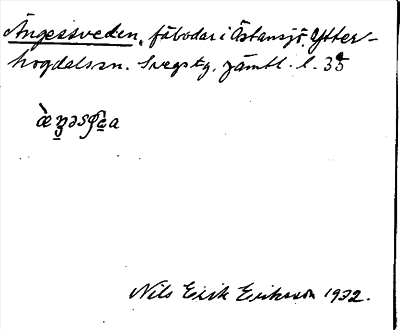 Ängessveden, fäbodar i Östansjö, Ytter-
hogdals sn. Svegs tg. Jämtl. l.
Nils Erik Eriksson 1932.